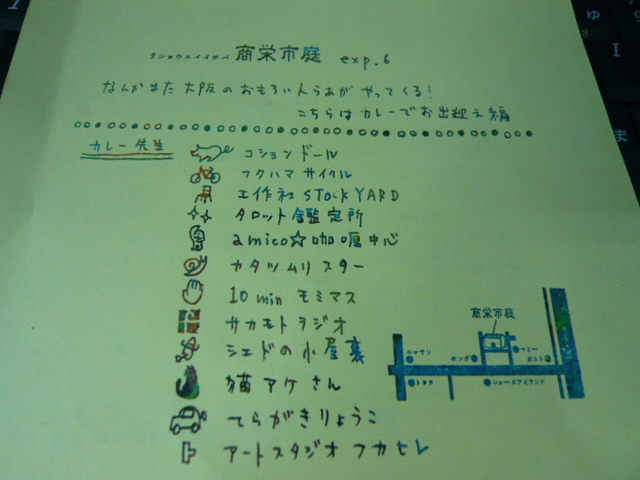 ショウエイイチバ 商栄市庭 exp.6
なんかまた大阪のおもろい人らぁがやってくる!
こちらはカレーでお出迎え編
カレー先生
コションドール
フクハマサイクル
工作社 STOCK YARD
タロット鑑定所
amico☆咖喱中心
カタツムリスター
10min モミマス
サカモトラジオ
シェドの小屋裏
猫アケさん
てらがきりょうこ
アートスタジオ フカヒレ
商栄市庭
ニッサン
ホンダ
マミー
ポスト
トヨタ
シューズアイランド
ゆ
ま